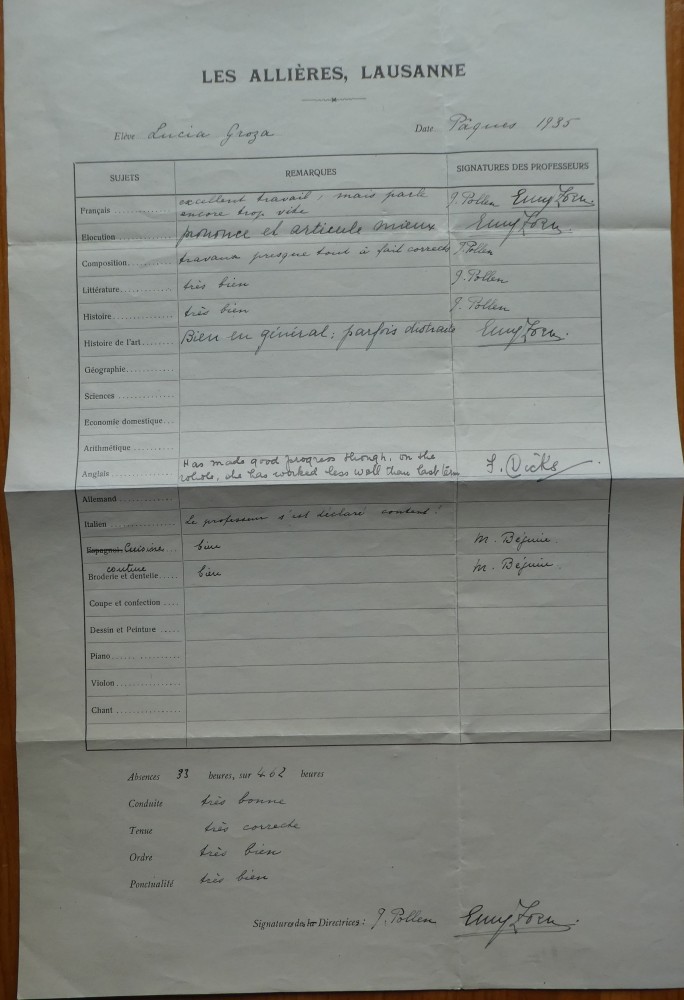 LES ALLIÈRES, LAUSANNE
Elève Lucia Groza Date Pâques 1935
SUJETS REMARQUES SIGNATURES DES PROFESSEURS
Français excellent travail, mais parle J. Pollen Emy Zorn.
encore trop vite
Elocution prononce et articule mieux Emy Zorn.
Composition travaux presque tout à fait corrects J. Pollen
Littérature très bien J. Pollen
Histoire très bien J. Pollen
Histoire de l'art Bien en général; parfois distraite Emy Zorn.
Géographie
Sciences
Economie domestique
Arithmétique
Anglais Has made good progress though, on the
whole, she has worked less well than last term F. Dicks
Allemand
Italien Le professeur s'est déclaré content!
Espagnol. Cuisine bien M. Béguin
couture
Broderie et dentelle bien M. Béguin
Coupe et confection
Dessin et Peinture
Piano
Violon
Chant
Absences 33 heures, sur 462 heures
Conduite très bonne
Tenue très correcte
Ordre très bien
Ponctualité très bien
Signatures des Directrices: J. Pollen Emy Zorn.